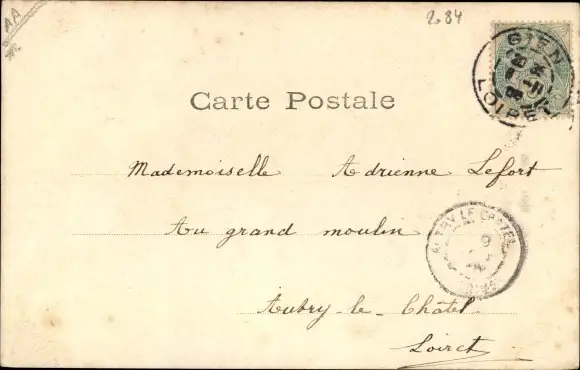 AA
284
GIEN
LOIRET
Carte Postale
Mademoiselle Adrienne Lefort
Au grand moulin
AUTRY LE CHATEL
Autry-le-Châtel
Loiret